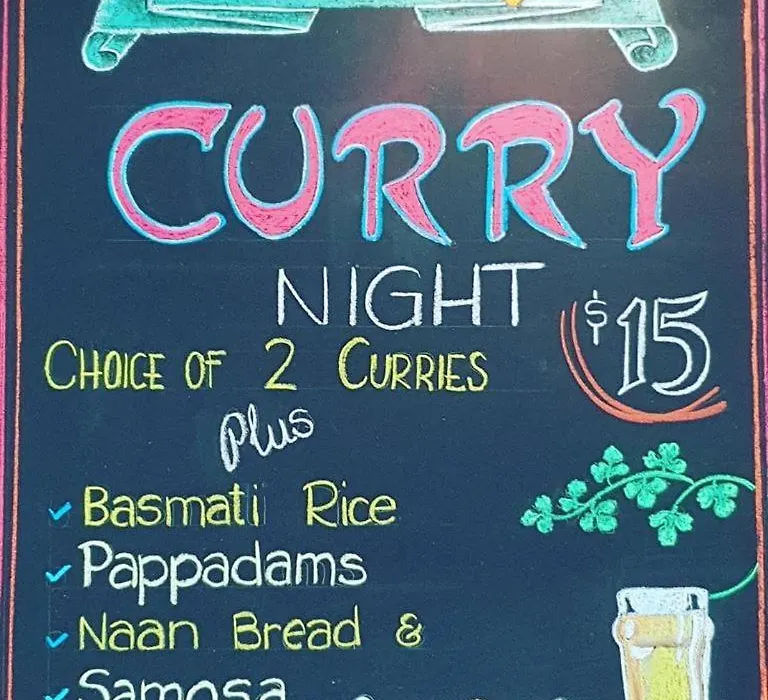 CURRY
NIGHT
$15
CHOICE OF 2 CURRIES
Plus
Basmati Rice
Pappadams
Naan Bread &
Samosa